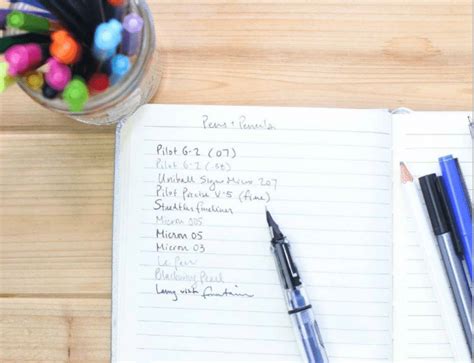 Pens + Pencils
Pilot G-2 (07)
Pilot G-2 (38)
Uniball Signo Micro 207
Pilot Precise V-5 (fine)
Staedtler fineliner
Micron 005
Micron 05
Micron 03
Le Pen
Blackwing Pearl
Lamy fountain